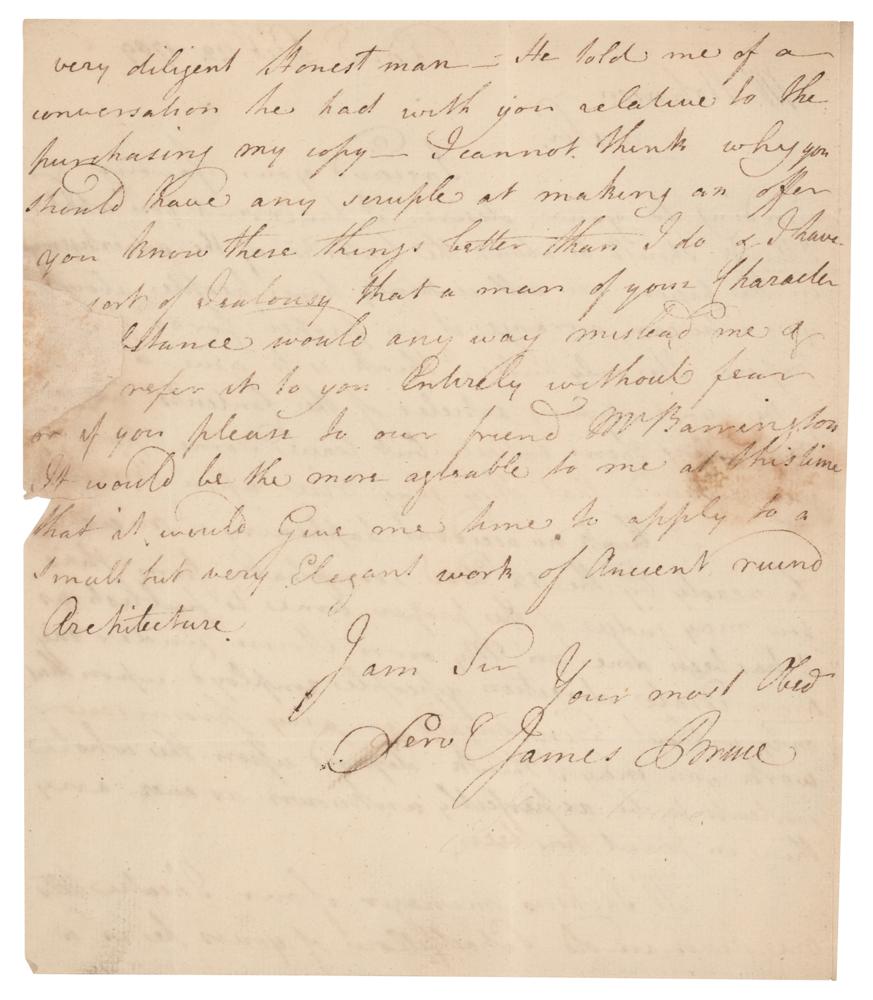 very diligent Honest man — He told me of a
conversation he had with you relative to the
purchasing my copy — I cannot think why you
should have any scruple at making an offer
you know these things better than I do & I have
sort of Jealousy that a man of your Character
stance would any way mislead me &
refer it to you Entirely without fear
or if you please to our friend Mr Barrington
It would be the more agreable to me at this time
that it would Give me time to apply to a
small but very Elegant work of Ancient ruind
Architecture
I am Sir
Your most Obed
Serv James Bruce